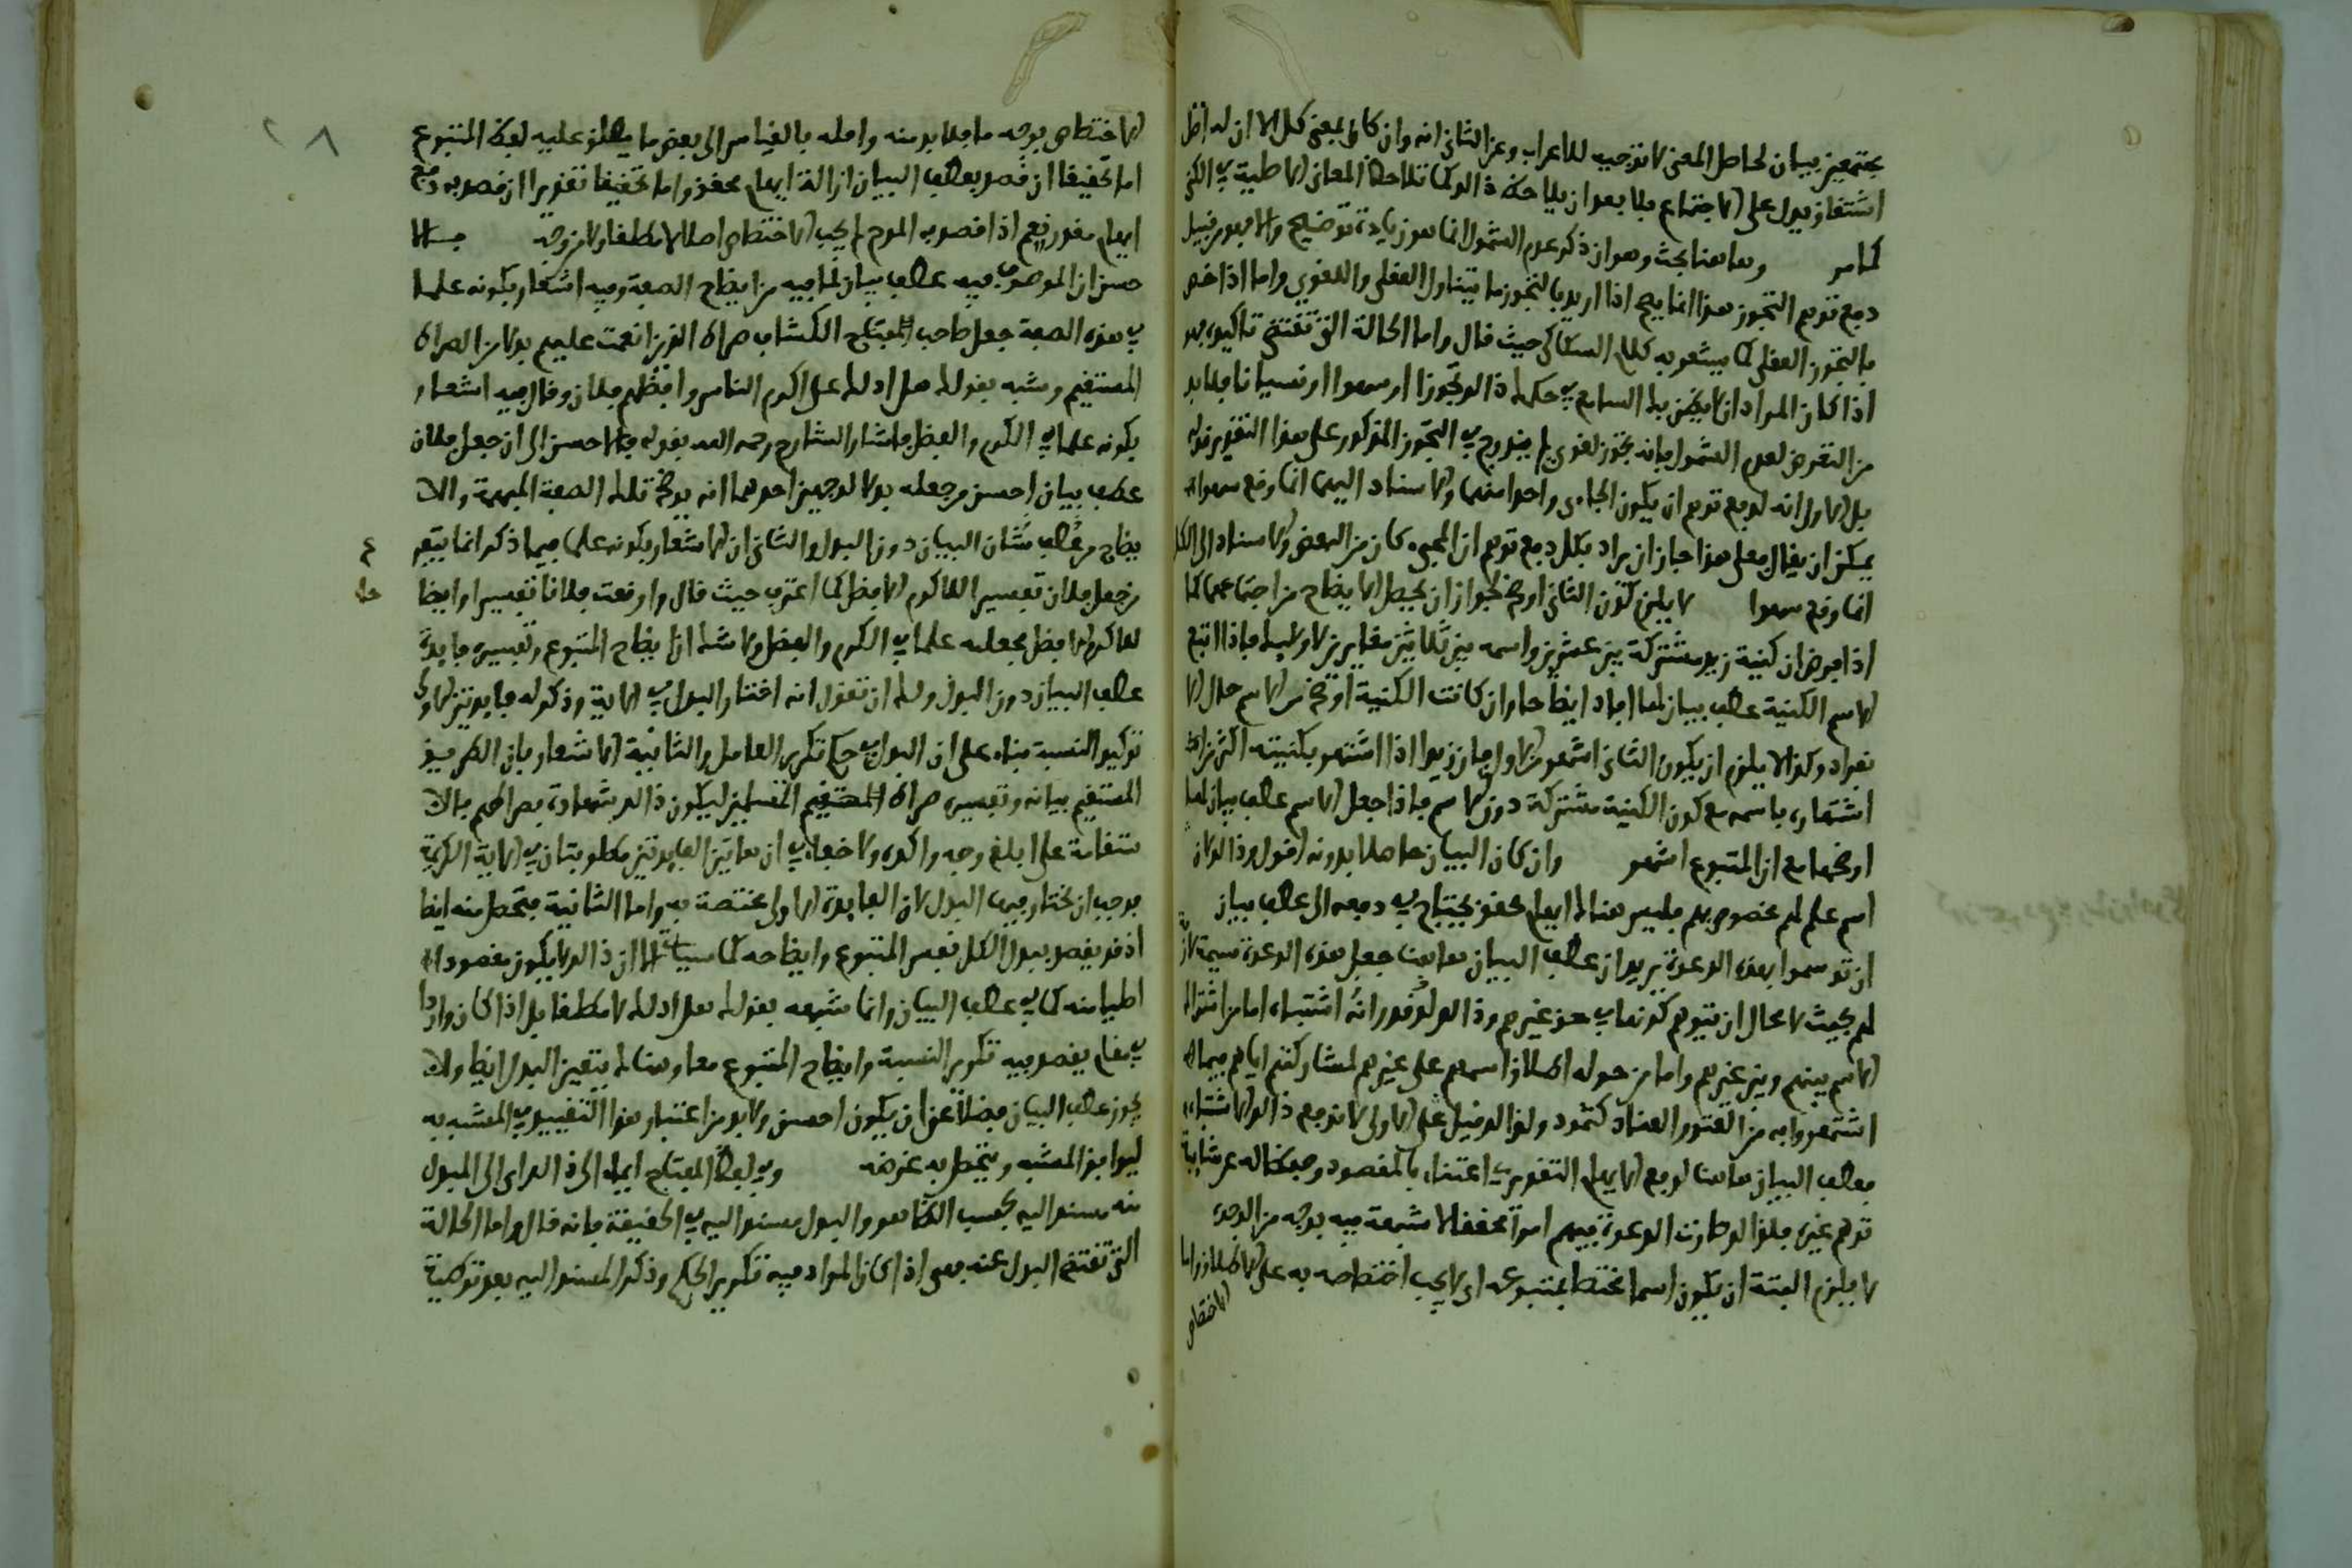 مجتمعين بيان لحاصل المعنى لا توجيه للاعراب وعن الثاني انه وان كان بمعنى كل الا ان له اصل
اشتقاق يدل على الاجتماع فلا بعد ان يلاحظ ذلك كما تلاحظ المعاني الاصلية في الكنى
كما مر وهاهنا بحث وهو ان ذكر عدم الشمول انما هو زيادة توضيح والا فهو من قبيل
دفع توهم التجوز هذا انما يصح اذا اريد بالتجوز ما يتناول العقلي واللغوي واما اذا خص
بالتجوز العقلي كما يشعر به كلام السكاكي حيث قال واما الحالة التي تقتضي تاكيده فهي
اذا كان المراد ان لا يظن بك السامع في حكمك ذلك تجوزا او سهوا او نسيانا فلا بد
من التعرض لعدم الشمول فانه تجوز لغوي لم يندرج في التجوز المذكور على هذا التقدير قوله
بل الاول انه لدفع توهم ان يكون الجاءي واحدا منهما والاسناد اليهما انما وقع سهوا
يمكن ان يقال فعلى هذا جاز ان يراد بكل دفع توهم ان المجيء كان من البعض والاسناد الى الكل
انما وقع سهوا لا يلزم كون الثاني اوضح لجواز ان يحصل الايضاح من اجتماعهما كما
اذا فرض ان كنية زيد مشتركة بين عشرين واسمه بين ثلاثين مغايرين لاوليك فاذا اتبع
الاسم الكنية عطف بيان لها افاد ايضاحا وان كانت الكنية اوضح من الاسم حال الا
نفراد وكذا لا يلزم ان يكون الثاني اشهر من الاول فان زيدا اذا اشتهر بكنيته اكثر من
اشتهاره باسمه مع كون الكنية مشتركة دون الاسم فاذا جعل الاسم عطف بيان لها
اوضحها مع ان المتبوع اشهر وان كان البيان حاصلا بدونه اقول وذلك لان
اسم علم لهم مخصوص بهم فليس هناك ابهام محقق يحتاج في دفعه الى عطف بيان
ان توسموا بهذه الدعوة يريد ان عطف البيان هاهنا جعل هذه الدعوة سيمة
لهم بحيث لا مجال ان يتوهم كونها في حق غيرهم وذلك لو قدر انه اشتباه اما من اشتراك
الاسم بينهم وبين غيرهم واما من حوله اطلاق اسمهم على غيرهم لمشاركتهم اياهم فيما
اشتهروا به من العتو والعناد كثمود ولذلك قيل على الاولى لاندفع ذلك الاشتباه
بعطف البيان هاهنا لدفع الابهام التقديري اعتناء بالمقصود وحفظا له عن شايبة
توهم غيره فلذلك صارت الدعوة فيهم امرا محققا لا شبهة فيه بوجه من الوجوه
لا يلزم البتة ان يكون اسما مختصا بمتبوعه اي لا يجب اختصاصه به على الاطلاق واما
الاختصاص
٢٨
الاختصاص بوجه ما فلا بد منه واقله بالقياس الى بعض ما يطلق عليه لفظ المتبوع
اما تحقيقا ان قصد بعطف البيان ازالة ابهام محقق واما تحقيقا تقديرا ان قصد به دفع
ابهام مقدر نعم اذا قصد به المدح لم يجب الاختصاص اصلا لا مطلقا ولا من وجه
حسن ان الموصوف فيه عطف بيان لما فيه من ايضاح الصفة وفيه اشعار بكونه علما
في هذه الصفة جعل صاحب الكشاف صراط الذين انعمت عليهم بدلا من الصراط
المستقيم وشبه بقولك هل ادلك على اكرم الناس وافضلهم فلان وقال فيه اشعار
بكونه علما في الكرم والفضل فاشار الشارح رحمه الله بقوله فالاحسن الى ان جعل فلان
عطف بيان احسن من جعله بدلا لوجهين احدهما انه يوضح تلك الصفة المبهمة والا
يضاح من عطف شان البيان دون البدل والثاني ان الاشعار بكونه علما فيما ذكر انما يتفر
من جعل فلان تفسيرا للاكرم الافضل كما اعترف حيث قال واوقعت فلانا تفسيرا وايضا
للاكرم الافضل فجعلته علما في الكرم والفضل ولا شك ان ايضاح المتبوع وتفسيره فايدة
عطف البيان دون البدل ولك ان تقول انه اختار البدل في الاية وذكر له فايدتين الاولى
توكيد النسبة بناء على ان البدل في حكم تكرير العامل والثانية الاشعار بان الطريق
المستقيم بيانه وتفسيره صراط المسلمين ليكون ذلك شهادة لصراطهم بالا
ستقامة على ابلغ وجه واكده ولا خفاء في ان هاتين الفايدتين مطلوبتان في الاية الكريمة
فوجب ان يختار فيها البدل لان الفايدة الاولى مختصة به واما الثانية فتحصل منه ايضا
اذ قد يقصد ببدل الكل تفسير المتبوع وايضاحه كما سياتي الا ان ذلك لا يكون مقصودا
اصليا منه كما في عطف البيان وانما شبهه بقولك هل ادلك لا مطلقا بل اذا كان واردا
في مقام يقصد فيه تكرير النسبة وايضاح المتبوع معا وهناك يتعين البدل ايضا ولا
يجوز عطف البيان فضلا عن ان يكون احسن ولا بد من اعتبار هذا التقييد في المشبه به
ليوافق المشبه ويحصل به غرضه وفي لفظ المفتاح ايماء الى ذلك اي الى المبدل
منه مسند اليه بحسب الظاهر والبدل مسند اليه في الحقيقة فانه قال واما الحالة
التي تقتضي البدل عنه فهي اذا كان المراد فيه تكرير الحكم وذكر المسند اليه بعد توطية